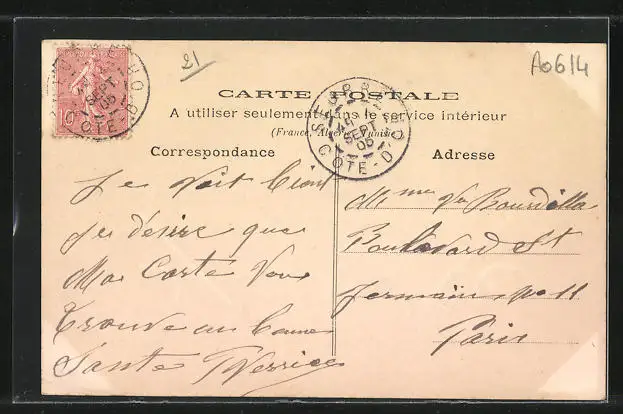 21
Ao614
CARTE POSTALE
A utiliser seulement dans le service intérieur
(France, Algérie, Tunisie)
Correspondance
Adresse
10
SEPT
05
COTE-D'O
SEPT
05
COTE-D'O
Je
Je désire que
Ma Carte Vous
trouve en bonne
Sante
Mme Vve Bourdilla
Boulevard St
Germain No 11
Paris